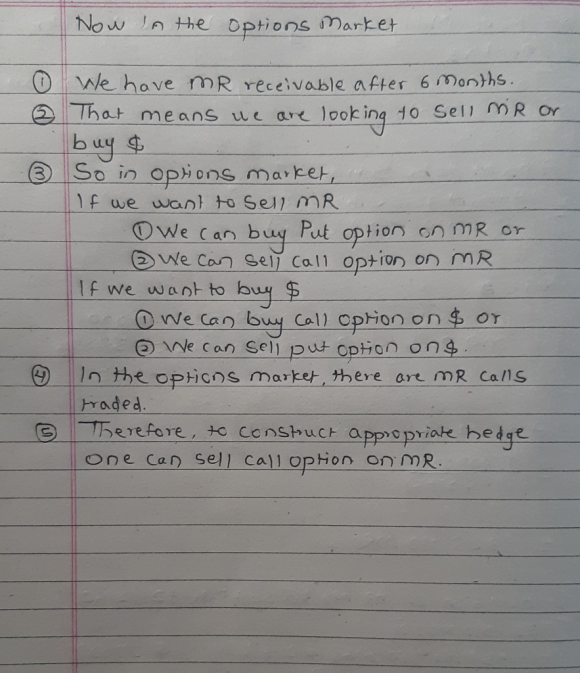 Now in the options market
① We have MR receivable after 6 months.
② That means we are looking to sell MR or
buy $
③ So in options market,
If we want to sell MR
① We can buy Put option on MR or
② We can sell call option on MR
If we want to buy $
① We can buy call option on $ or
② We can sell put option on $.
④ In the options market, there are MR calls
traded.
⑤ Therefore, to construct appropriate hedge
one can sell call option on MR.